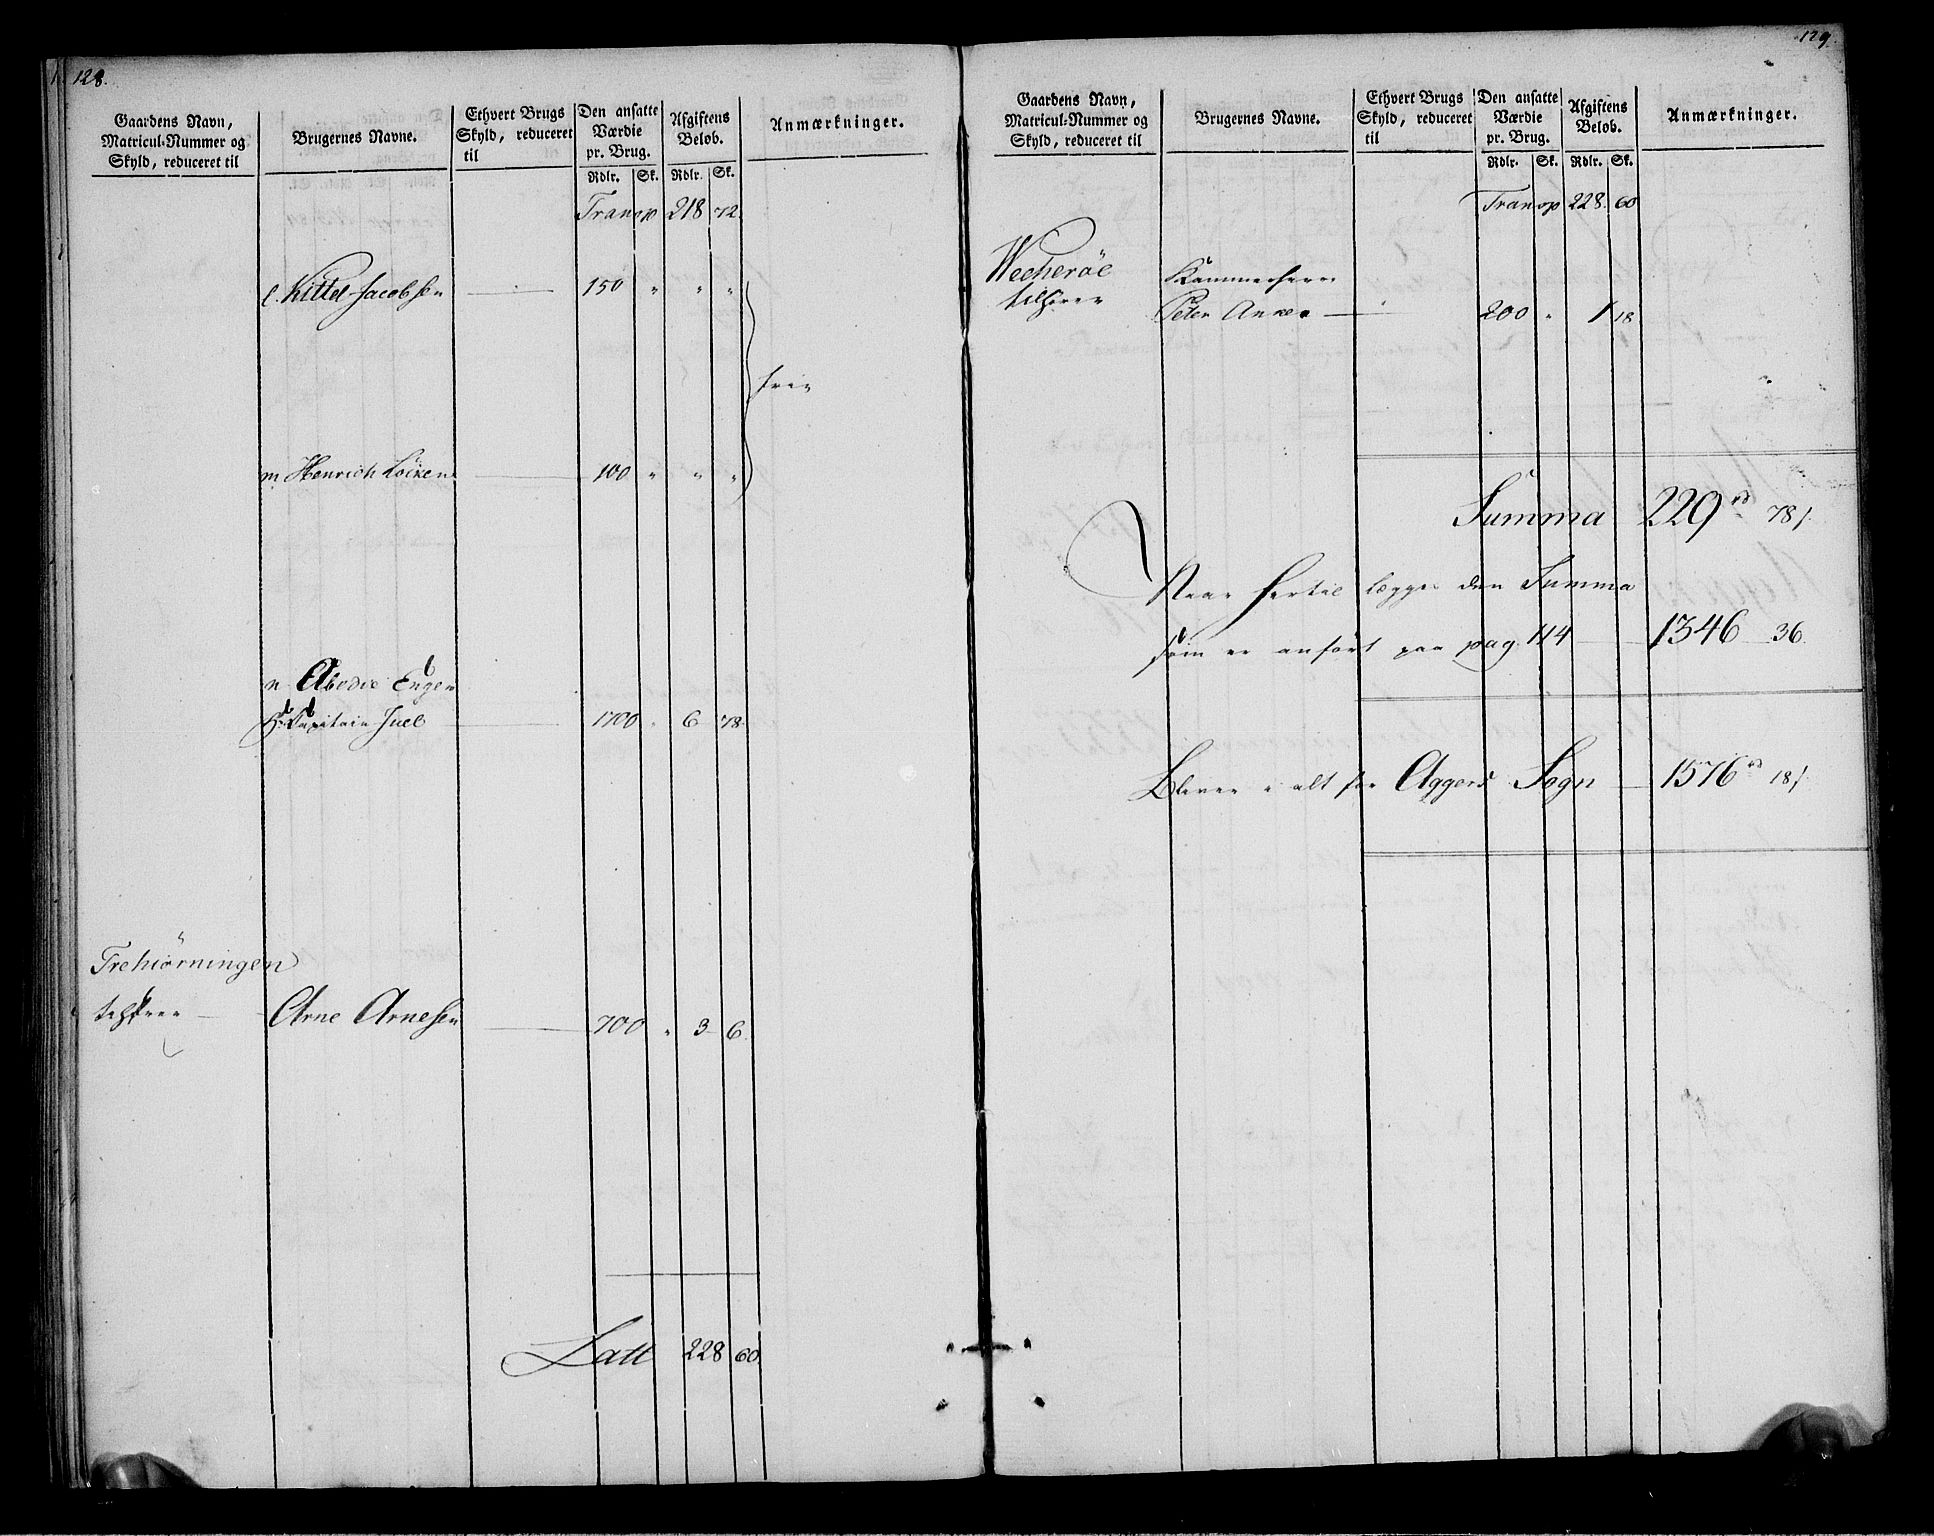 128.
Gaardens Navn, Matricul-Nummer og Skyld, reduceret til
Brugernes Navne.
Ethvert Brugs Skyld, reduceret til
Den ansatte Værdie pr. Brug.
Afgiftens Beløb.
Anmærkninger.
Rdlr. Sk. Rdlr. Sk.
Transp 218 72.
l. Kittel Jacobsen 150 " " "
frie
m. Henrich Løcken 100 " " "
n. Abedie Engen
Capitain Juel 1700 " 6 78.
Trehiørningen
tilhører Arne Arnesen 700 " 3 6.
Latt 228 60.
129.
Gaardens Navn, Matricul-Nummer og Skyld, reduceret til
Brugernes Navne.
Ethvert Brugs Skyld, reduceret til
Den ansatte Værdie pr. Brug.
Afgiftens Beløb.
Anmærkninger.
Rdlr. Sk. Rdlr. Sk.
Transp 228. 60
Wecherøe Kammerherre
tilhører Peter Anker 200 " 1 18
Summa 229 rd 78 s.
Naar hertil lægges den Summa
som er anført paa pag. 114 1346 36.
Bliver i alt for Aggers Sogn 1576 rd 18 s.